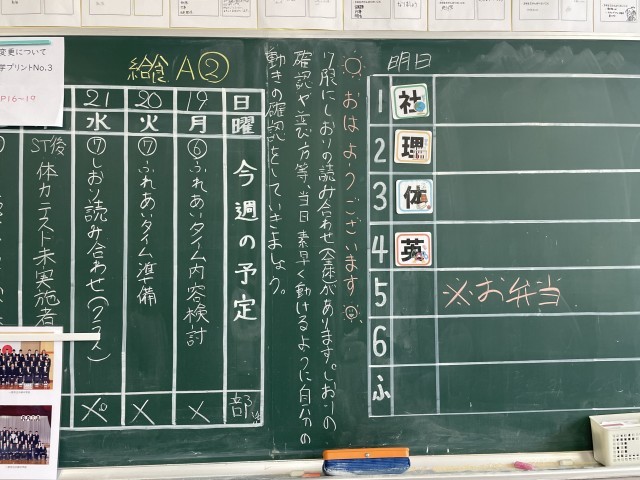 明日
1 社
2 理
3 体
4 英
5 ※お弁当
6
ふ
おはようございます
り限にしおりの読み合わせ(全体)があります。しおりの
確認や並び方等、当日素早く動けるように自分の
動きの確認をしていきましょう。
給食 A②
今週の予定
日 曜 部
19 月 ⑥ふれあいタイム内容検討 ×
20 火 ⑦ふれあいタイム準備 ×
21 水 ⑦しおり読み合わせ(クラス) ×
ST後 体力テスト未実施者
変更について
プリントNo.3
P16~19